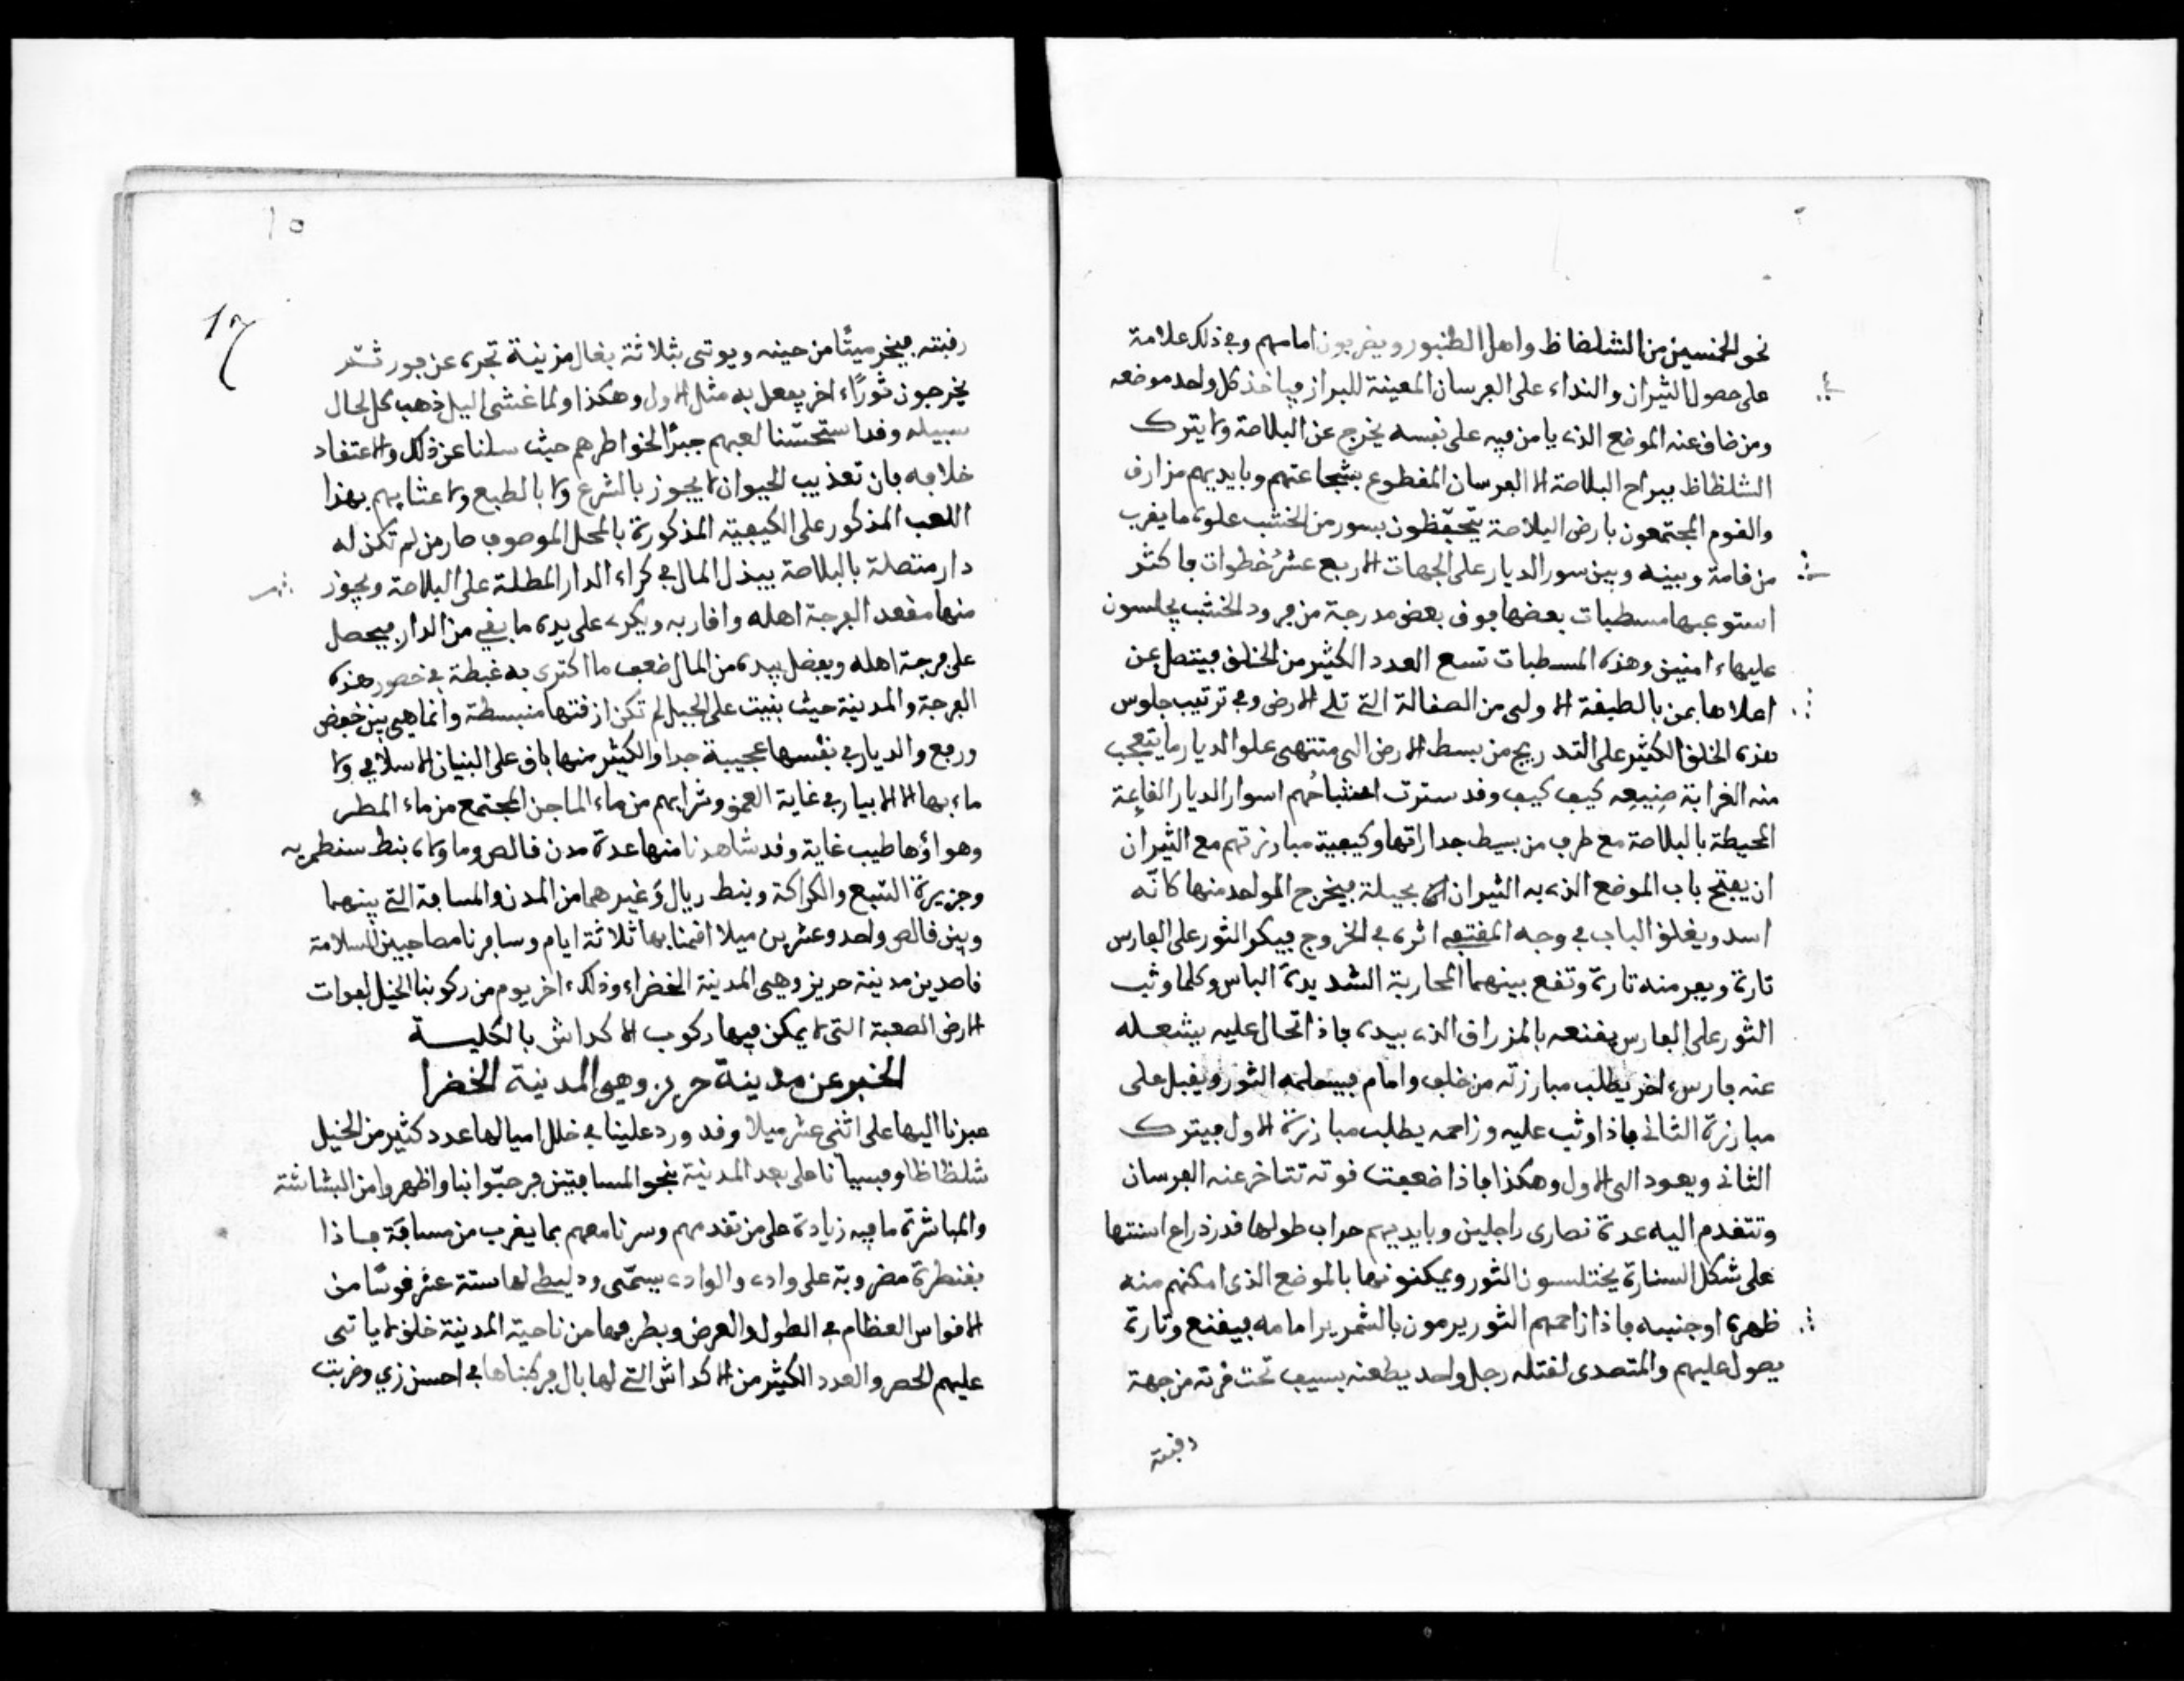 نحو الخمسين من الشلظاظ واهل الطنبور ويضربون امامهم وفي ذلك علامة
على حصول الثيران والنداء على الفرسان المعينة للبراز فياخذ كل واحد موضعه
ومن ضاق عنه الموضع الذي يامن فيه على نفسه يخرج عن البلاصة ولا يترك
الشلظاظ ببراح البلاصة الا الفرسان المقطوع بشجاعتهم وبايديهم مزارق
والقوم المجتمعون بارض البلاصة يتحفّظون بسور من الخشب علوه ما يقرب
من قامة وبينه وبين سور الديار على الجهات الاربع عشرُ خطوات فاكثر
استوعبها مسطبات بعضها فوق بعض مدرجة من فرود الخشب يجلسون
عليهاء امنين وهذه المسطبات تسع العدد الكثير من الخلق فيتصل من
اعلاها بمن بالطبقة الاولى من الصقالة التي تلي الارض وفي ترتيب جلوس
هذه الخلق الكثير على التدريج من بسط الارض الى منتهى علو الديار ما يتعجب
منه الغرابة صنيعه كيف كيف وقد سترت اشباحُهم اسوار الديار القاءمة
المحيطة بالبلاصة مع طرف من بسيط جداراتها وكيفية مبارزتهم مع الثيران
ان يفتح باب الموضع الذي به الثيران بحيلة فيخرج الواحد منها كانّه
اسد ويغلق الباب في وجه المقتفي اثره في الخروج فيكر الثور على الفارس
تارة ويفر منه تارة وتقع بينهما المحاربة الشديدة الباس وكلما وثب
الثور على الفارس يقنعه بالمزراق الذي بيده فاذا تحال عليه يشغله
عنه فارس اخر يطلب مبارزته من خلف وامام فيسلمه الثور ويقبل على
مبارزة الثاني فاذا وثب عليه وزاحمه يطلب مبارزة الاول فيترك
الثاني ويعود الى الاول وهكذا فاذا ضعفت قوته تتاخر عنه الفرسان
وتتقدم اليه عدة نصارى راجلين وبايديهم حراب طولها قدر ذراع اسنتها
على شكل السنارة يختلسون الثور ويمكنونها بالموضع الذي امكنهم منه
ظهره او جنبيه فاذا زاحمهم الثور يرمون بالشمرير امامه فيقنع وتارة
يصول عليهم والمتصدى لقتله رجل واحد يطعنه بسيف تحت قرنه من جهة
رقبته
10
17
رقبته فيخر ميتًا من حينه ويوتى بثلاثة بغال مزينة تجره عن فور ثـم
يخرجون ثورًاء اخر يفعل به مثل الاول وهكذا ولما غشى اليل ذهب كل لحال
سبيله وقد استحسّنا لعبهم جبرًا لخواطرهم حيث سلنا عن ذلك والاعتقاد
خلافه بان تعذيب الحيوان لا يجوز بالشرع ولا بالطبع ولاعتنايهم بهذا
اللعب المذكور على الكيفية المذكورة بالمحل الموصوف صار من لم تكن له
دار متصلة بالبلاصة يبذل المال في كراء الدار المطلة على البلاصة ويحوز
منها مقعد الفرجة اهله واقاربه ويكرى على يده ما بقي من الدار فيحصل
على فرجة اهله ويفضل بيده من المال ضعف ما اكترى به غبطة في حضور هذه
الفرجة والمدينة حيث بنيت على الجبل لم تكن ازقتها منبسطة وانما هي بين خفض
ورفع والديار في نفسها عجيبة جدا والكثير منها باق على البنيان الاسلامي ولا
ماء بها الا الابيار في غاية العمق وشرابهم من ماء الماجن المجتمع من ماء المطر
وهواؤها طيب غاية وقد شاهدنا منها عدة مدن قالص وما ولاه بنط سنطمريه
وجزيرة السّبع والكراكة وبنط ريال وغيرهما من المدن والمسافة التي بينهما
وبين قالص واحد وعشرين ميلا اقمنا بها ثلاثة ايام وسافرنا مصاحبين للسلامة
قاصدين مدينة حريز وهي المدينة الخضراء وذلك اخر يوم من ركوبنا الخيل لفوات
الارض الصعبة التي لا يمكن فيها ركوب الاكداش بالكليـــة
الخبر عن مدينة حريز وهي المدينة الخضرا
عبرنا اليها على اثنى عشر ميلا وقد ورد علينا في خلال اميالها عدد كثير من الخيل
شلظاظا وقسيانا على بعد المدينة بنحو المسافتين فرحّبوا بنا واظهروا من البشاشة
والمباشرة ما فيه زيادة على من تقدمهم وسرنا معهم بما يقرب من مسافة فاذا
بقنطرة مضروبة على وادي والوادي يسمّى ودليط لها ستة عشر قوسًا من
الاقواس العظام في الطول والعرض وبطرفها من ناحية المدينة خلق لا ياتى
عليهم الحصر والعدد الكثير من الاكداش التي لها بال فركبناها في احسن زي وضربت